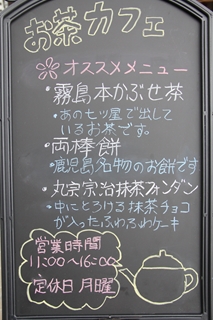 お茶カフェ
オススメメニュー
・霧島本かぶせ茶
・あの七ツ屋で出して
いるお茶です。
・両棒餅
・鹿児島名物のお餅です
・丸宗宗治抹茶フォンダン
・中にとろける抹茶チョコ
が入ったふわふわケーキ
営業時間
11:00〜16:00
定休日 月曜